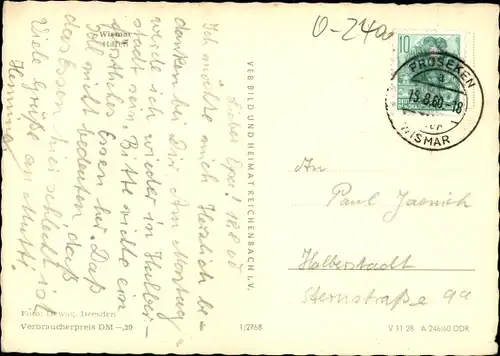 Wismar
Hafen
0-24a
10
DEUTSCHE
PROSEKEN
a
15.8.60.-18
WISMAR
Lieber Opa! 14.8.60
Ich möchte mich Herzlich be-
danken bei Dir. Am Montag
werde ich wieder in Halber-
stadt sein. Bitte richte ein
köstliches Essen her. Daß
soll nicht bedeuten daß
das Essen hier schlecht ist.
Viele Grüße an Mutti
Henning
VEB BILD UND HEIMAT REICHENBACH I. V.
An
Paul Jasnich
Halberstadt
Sternstraße 9a
Foto: Dewag, Dresden
Verbraucherpreis DM –,20
1/2768
V 11 28 A 246/60 DDR